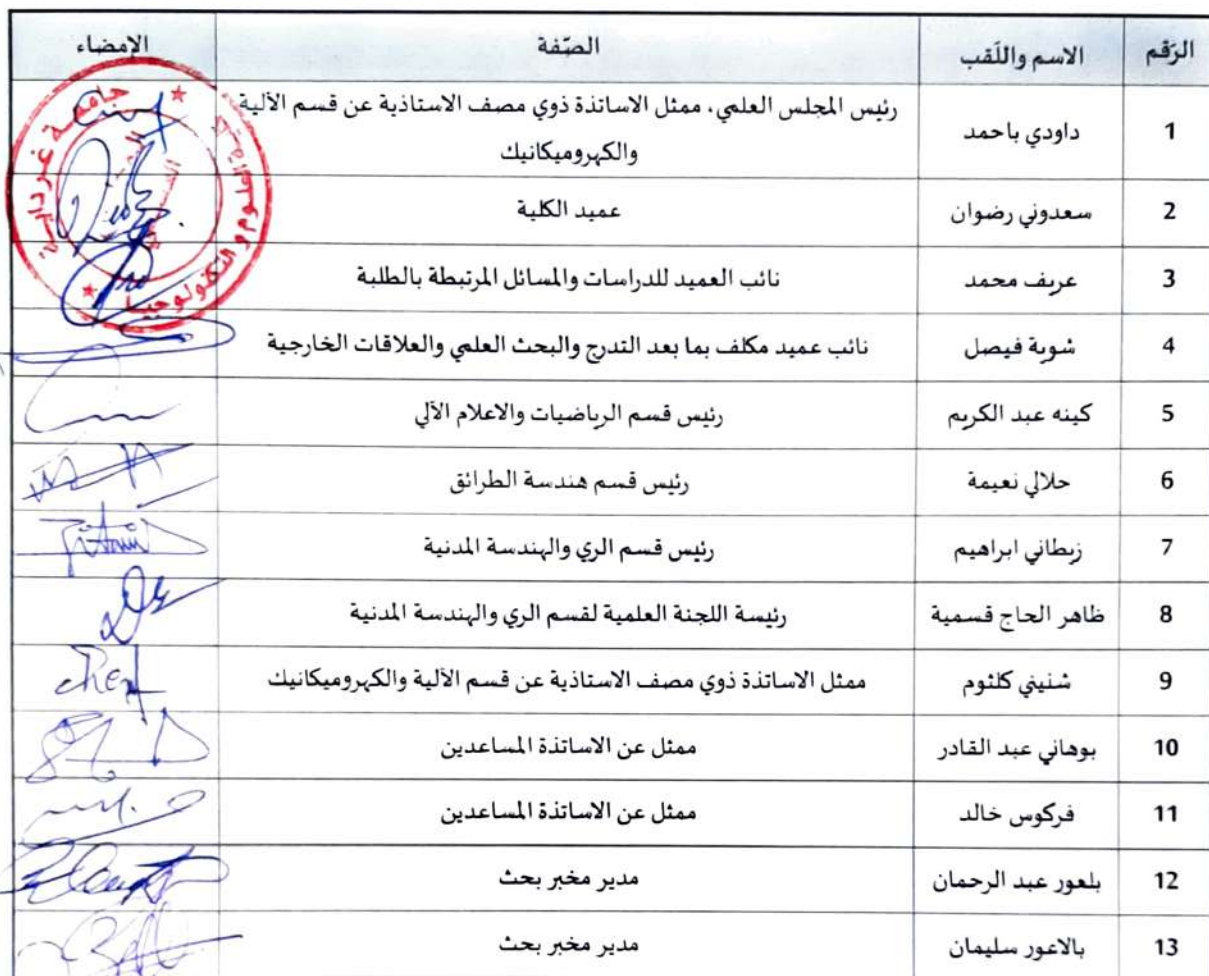 الرّقم الاسم واللّقب الصّفة الإمضاء
1 داودي باحمد رئيس المجلس العلمي، ممثل الاساتذة ذوي مصف الاستاذية عن قسم الآلية
والكهروميكانيك
2 سعدوني رضوان عميد الكلية
3 عريف محمد نائب العميد للدراسات والمسائل المرتبطة بالطلبة
4 شوية فيصل نائب عميد مكلف بما بعد التدرج والبحث العلمي والعلاقات الخارجية
5 كينه عبد الكريم رئيس قسم الرياضيات والاعلام الآلي
6 حلالي نعيمة رئيس قسم هندسة الطرائق
7 زيطاني ابراهيم رئيس قسم الري والهندسة المدنية
8 ظاهر الحاج قسمية رئيسة اللجنة العلمية لقسم الري والهندسة المدنية
9 شنيني كلثوم ممثل الاساتذة ذوي مصف الاستاذية عن قسم الآلية والكهروميكانيك
10 بوهاني عبد القادر ممثل عن الاساتذة المساعدين
11 فركوس خالد ممثل عن الاساتذة المساعدين
12 بلعور عبد الرحمان مدير مخبر بحث
13 بالاعور سليمان مدير مخبر بحث
جامعة غرداية
العلوم والتكنولوجيا